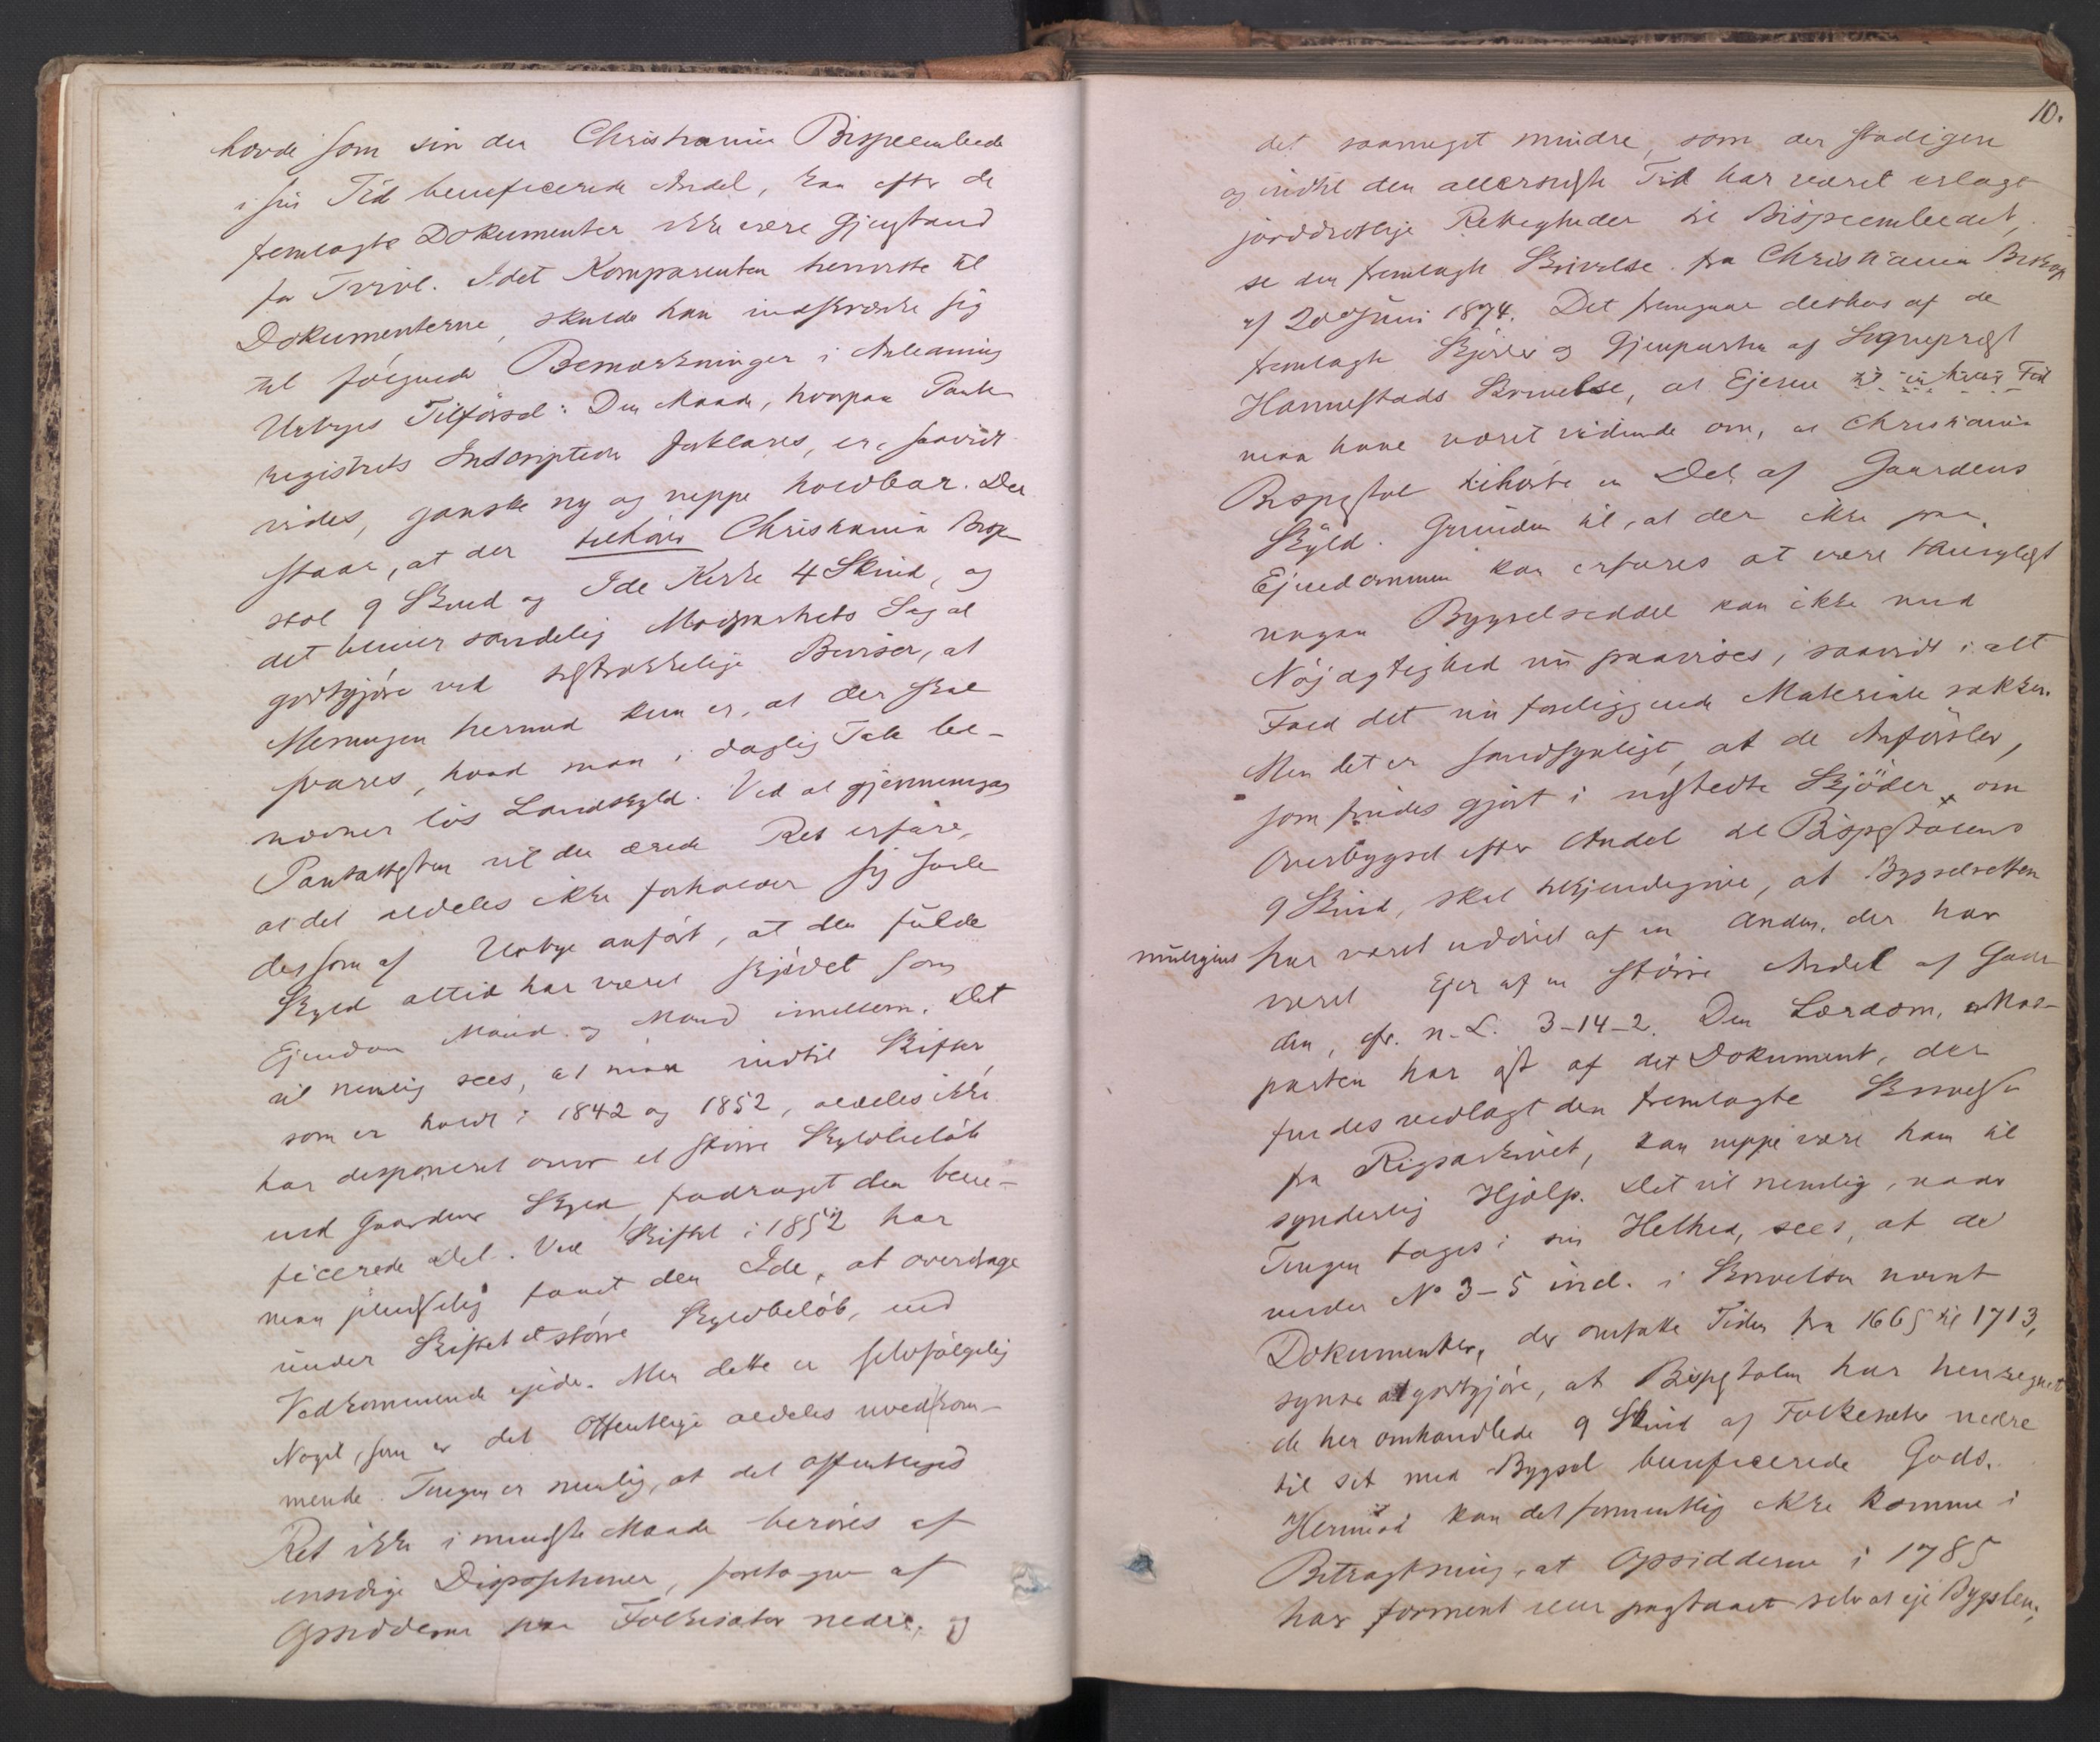 havde som sin der Christiania Bispeembede
i sin Tid beneficerede Andel, kan efter de
fremlagte Dokumenter ikke være Gjenstand
for Tvivl. Idet Komparenten henviste til
Dokumenterne, skulde han indskrænke sig
til følgende Bemærkninger i Anledning
Urbyes Tilførsel: Den Maade, hvorpaa Pante-
registrets Inscription forklares, er, saavidt
vides, ganske ny og neppe holdbar. Der
staar, at der tilhører Christiania Bispe-
stol 9 Skind og Ide Kirke 4 Skind, og
det bliver sandelig Modpartiets Sag at
godtgjøre ved utstrækkelige Beviser, at
Meningen hermed kun er, at der skal
svares, hvad man i daglig Tale be-
nævner løs Landskyld. Ved at gjennemgaa
Pantattesten vil den ærede Ret erfare,
at det aldeles ikke forholder sig saale-
des som af Urbye anført, at den fulde
Skyld altid har været skjødet som
Ejendom Mand og Mand imellem. Det
vil nemlig sees, at man indtil Skifter,
som er holdt i 1842 og 1852, aldeles ikke
har disponeret over et større Skyldbeløb
end Gaardens Skyld fradraget den bene-
ficerede Del. Ved Skiftet i 1852 har
man pludselig faaet den Ide, at overdrage
under Skiftet et større Skyldbeløb, end
Vedkommende ejede. Men dette er selvfølgelig
Noget, som er det Offentlige aldeles uvedkom-
mende. Tingen er nemlig, at det offentliges
Ret ikke i mindste Maade berøres af
ensidige Dispositioner, foretagne af
Opsidderne paa Folkesæter nedre, og
10.
det saameget mindre, som der stadigen
og indtil den allersidste Tid har været erlagt
jorddrotlige Rettigheder til Bispeembedet,
se den fremlagte Skrivelse fra Christiania Biskop
af 20de Juni 1874. Det fremgaar derhos af de
fremlagte Skjøder og Gjenparten af Sogneprest
Hannestads Skrivelse, at Ejerne til enhver Tid
maa have været vidende om, at Christiania
Bispestol tilhørte en Del af Gaardens
Skyld. Grunden til, at der ikke paa
Ejendommen kan erfares at være thinglyst
nogen Bygselseddel kan ikke med
Nøjagtighed nu paavises, saavidt i alt
Fald det nu foreliggende Materiale rækker.
Men det er sandsynligt, at de Anførsler,
som findes gjort i udstedte Skjøder om
Overbygsel efter Andel til Bispestolens
9 Skind, skal tilkjendegive, at Bygselretten
muligens har været udøvet af en Anden, der har
været Ejer af en større Andel af Gaar-
den, cfr. N.L. 3-14-2. Den Lærdom, Mod-
parten har øst af det Dokument, der
findes vedlagt den fremlagte Skrivelse
fra Rigsarkivet, kan neppe være ham til
synderlig Hjælp. Det vil nemlig, naar
Tingen tages i sin Helhed, sees, at de
under No 3-5 incl. i Skrivelsen nævnt
Dokumenter, der omfatte Tiden fra 1665 til 1713,
synes at godtgjøre, at Bispestolen har henregnet
de her omhandlede 9 Skind af Folkesæter nedre
til sit med Bygsel beneficerede Gods.
Hermod kan det formentlig ikke komme i
Betragtning, at Opsidderne i 1785
har forment eller paastaaet selv at eje Bygslen,